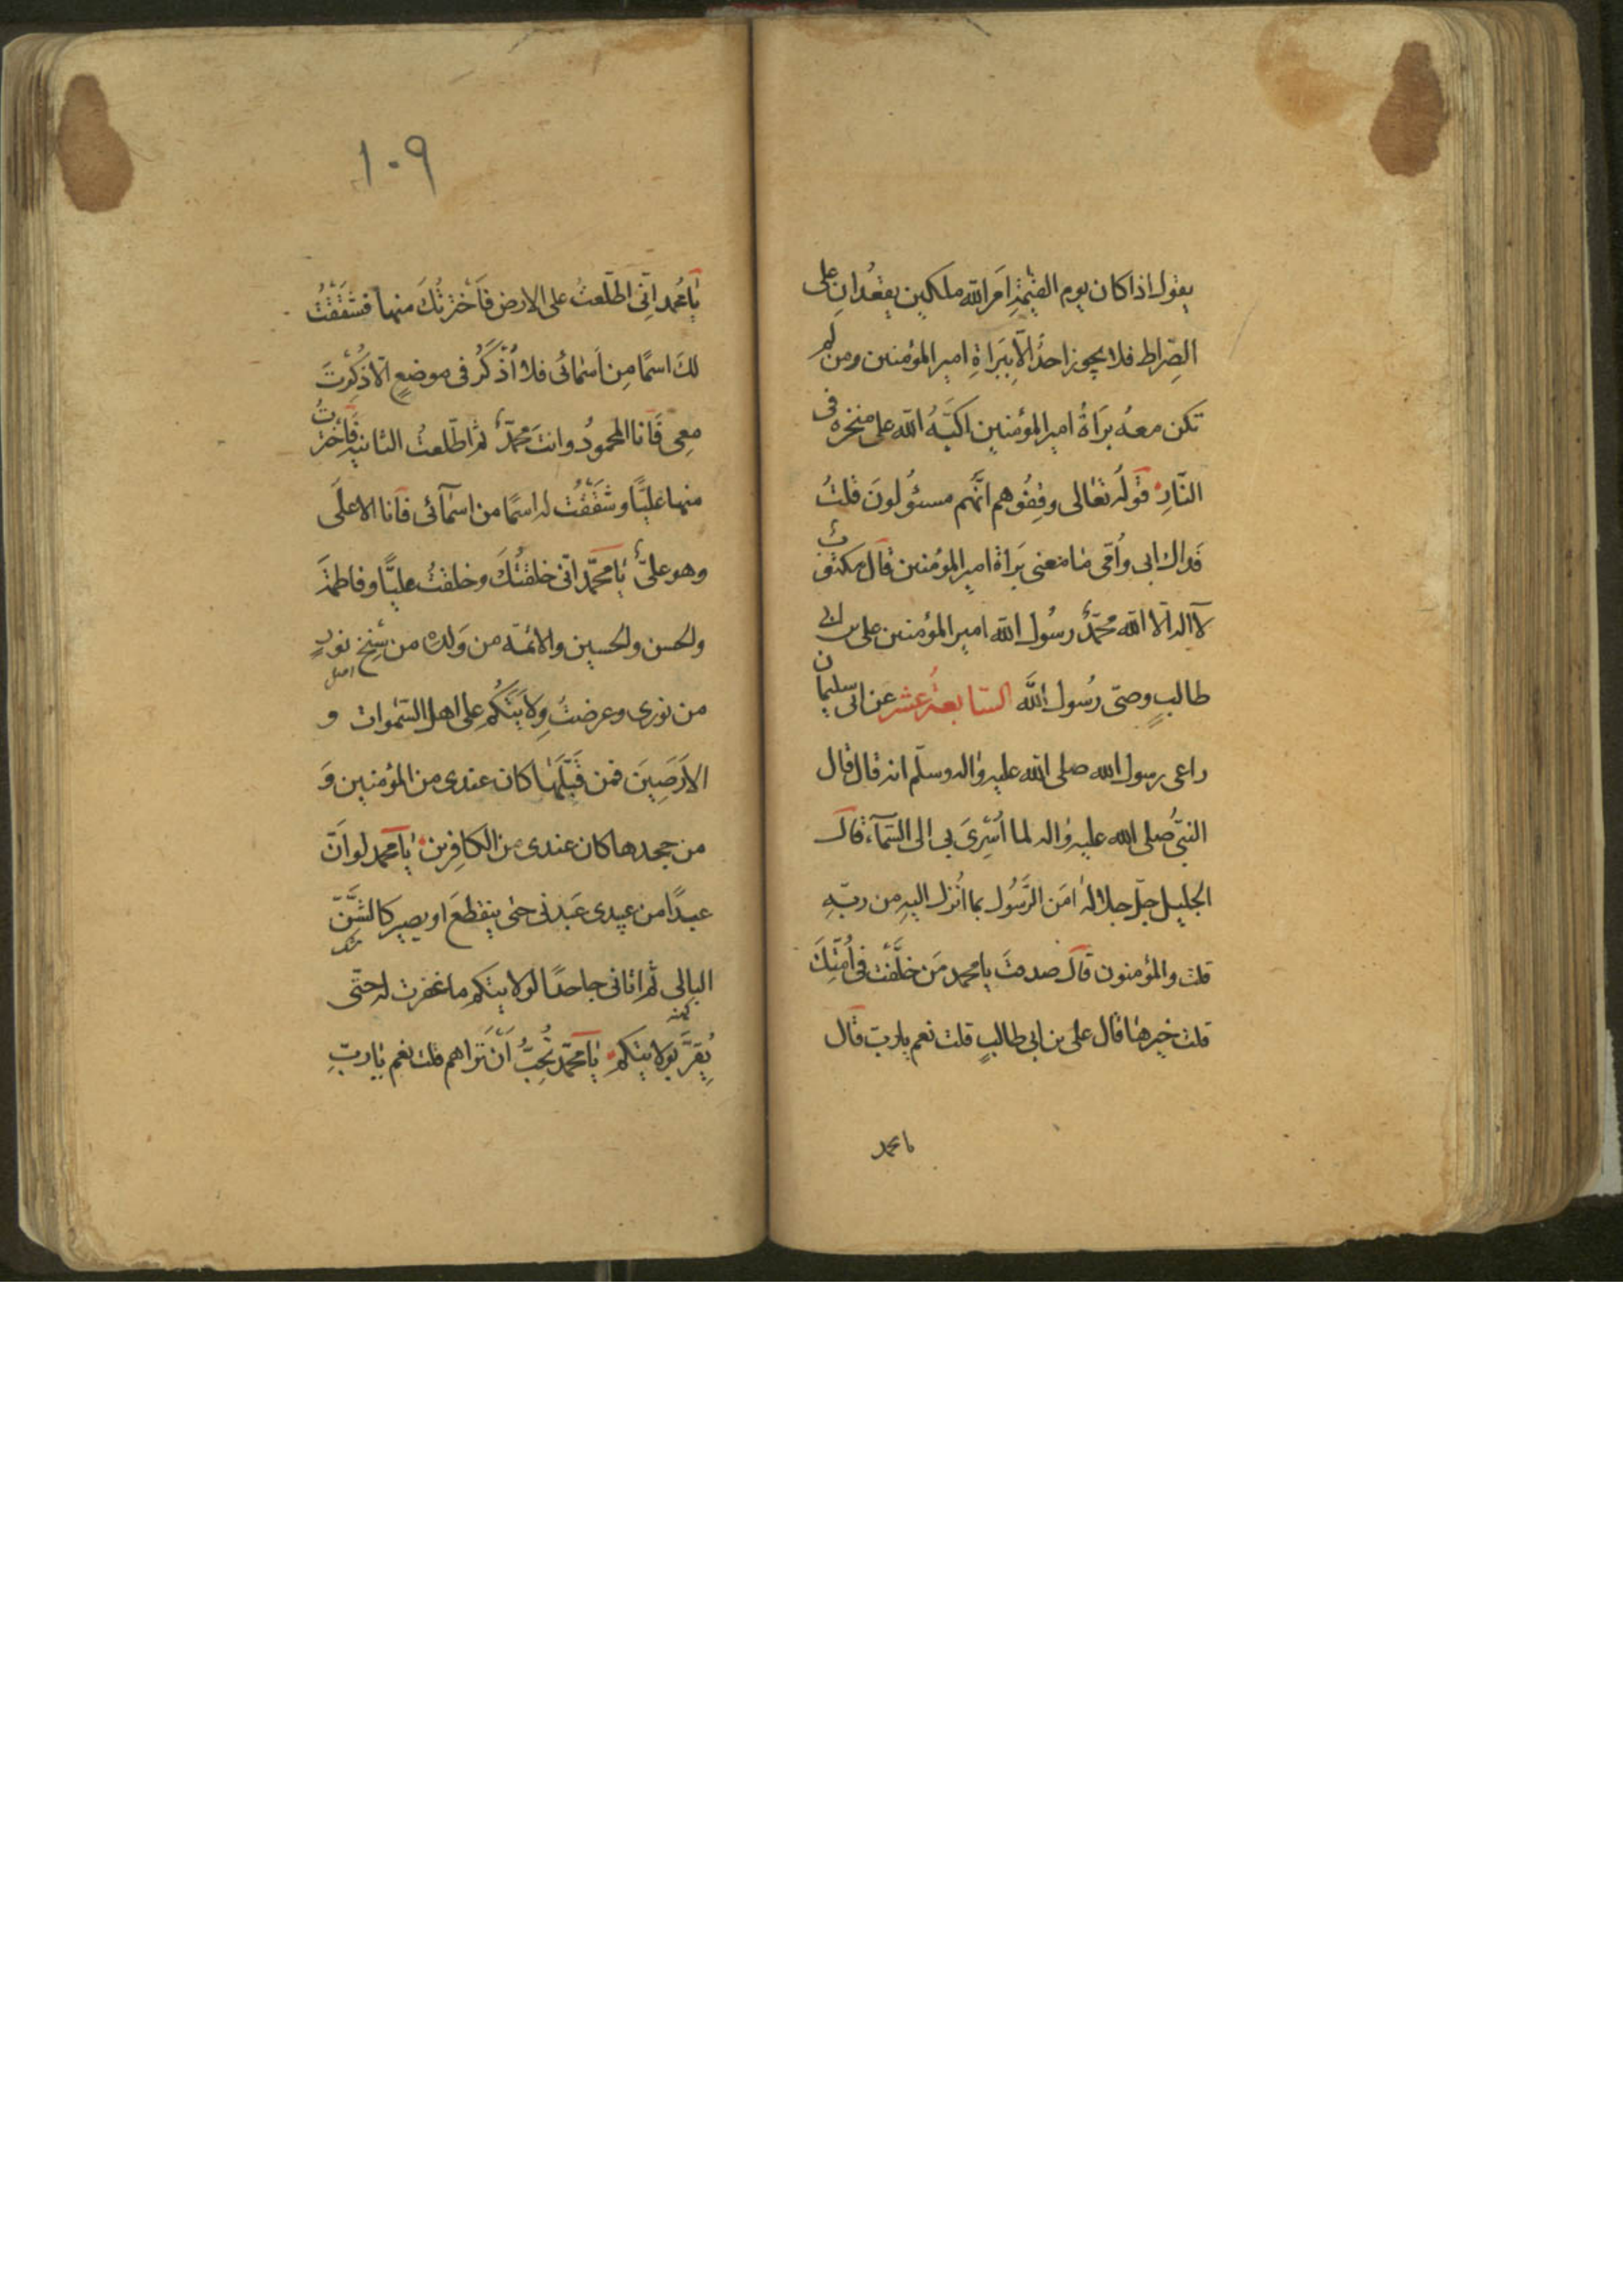 يقول اذا كان يوم القيٰمة اَمَر الله ملكين يقعُدان على
الصِّراط فلا يجوز احدٌ الّا بِبَراةِ امير المؤمنين ومن لم
تكن معه بَراةُ امير المؤمنين اكبَّهُ الله على منخره فى
النّارِ قَولُه تعالى وقِفُوهم انّهم مسئولونَ قلتُ
فداك ابى واُمّى مٰا معنى بَراة امير المؤمنين قال مكتوب
لآ اله الّا الله محمّدٌ رسُول الله امير المؤمنين على بن ابى
طالبٍ وصىّ رسُول الله السّابعة عشر عن ابى سليمان
راعى رسول الله صلى الله عليه وٰاله وسلّم انه قال قال
النبىُّ صلى الله عليه وٰاله لما اُسْرِىَ بى الى السّمآء قال
الجليل جلّ جلاله اٰمَن الرَّسُول بما اُنزل اليهِ من ربّهِ
قلت والمؤمنون قال صدقتَ يا محمد مَن خلَّفْتَ فى اُمّتِكَ
قلت خيرهٰا قال على بن ابى طالبٍ قلت نعم يا ربّ قال
يا محمد
١٠٩
يٰا محُمد اِنّى اطّلعتُ على الارض فَاَخْتَرتُكَ منها فشَقَقْتُ
لكَ اسمًا مِن اَسْمائى فلا اُذكَرُ فى موضعٍ الّا ذُكِرْتَ
معِى فَاَنا المحمودُ وانتَ محمّدٌ ثم اطّلعتُ الثانية فَاَخْتَرتُ
منها عليًّا وشَقَقْتُ له اسمًا من اسمآئى فاَنا الاعلَى
وهو علىٌّ يٰا محمّد انّى خلقتُكَ وخلقتُ عليًّا وفاطمةَ
والحسن والحسين والائمّة من وَلده من سِنخِ نورٍ
اصل
من نورى وعرضتُ وِلاَيَتَكُم على اهل السّمٰوات و
الاَرَضِينَ فمن قَبِلَهٰا كان عندى من المؤمنين وَ
من جحدها كان عندى من الكافِرين يٰا محمد لو اَنّ
عبدًا من عبيدى عَبَدنى حتى ينقطعَ او يصير كالشَّنِّ
البالى ثم اتانى جاحدًا لولايتكم ما غفرت له حتّى
كهنه
يُقِرَّ بولايتكم يٰا محمّد تُحِبُّ اَنْ تَراهم قلت نعم يٰا ربِّ